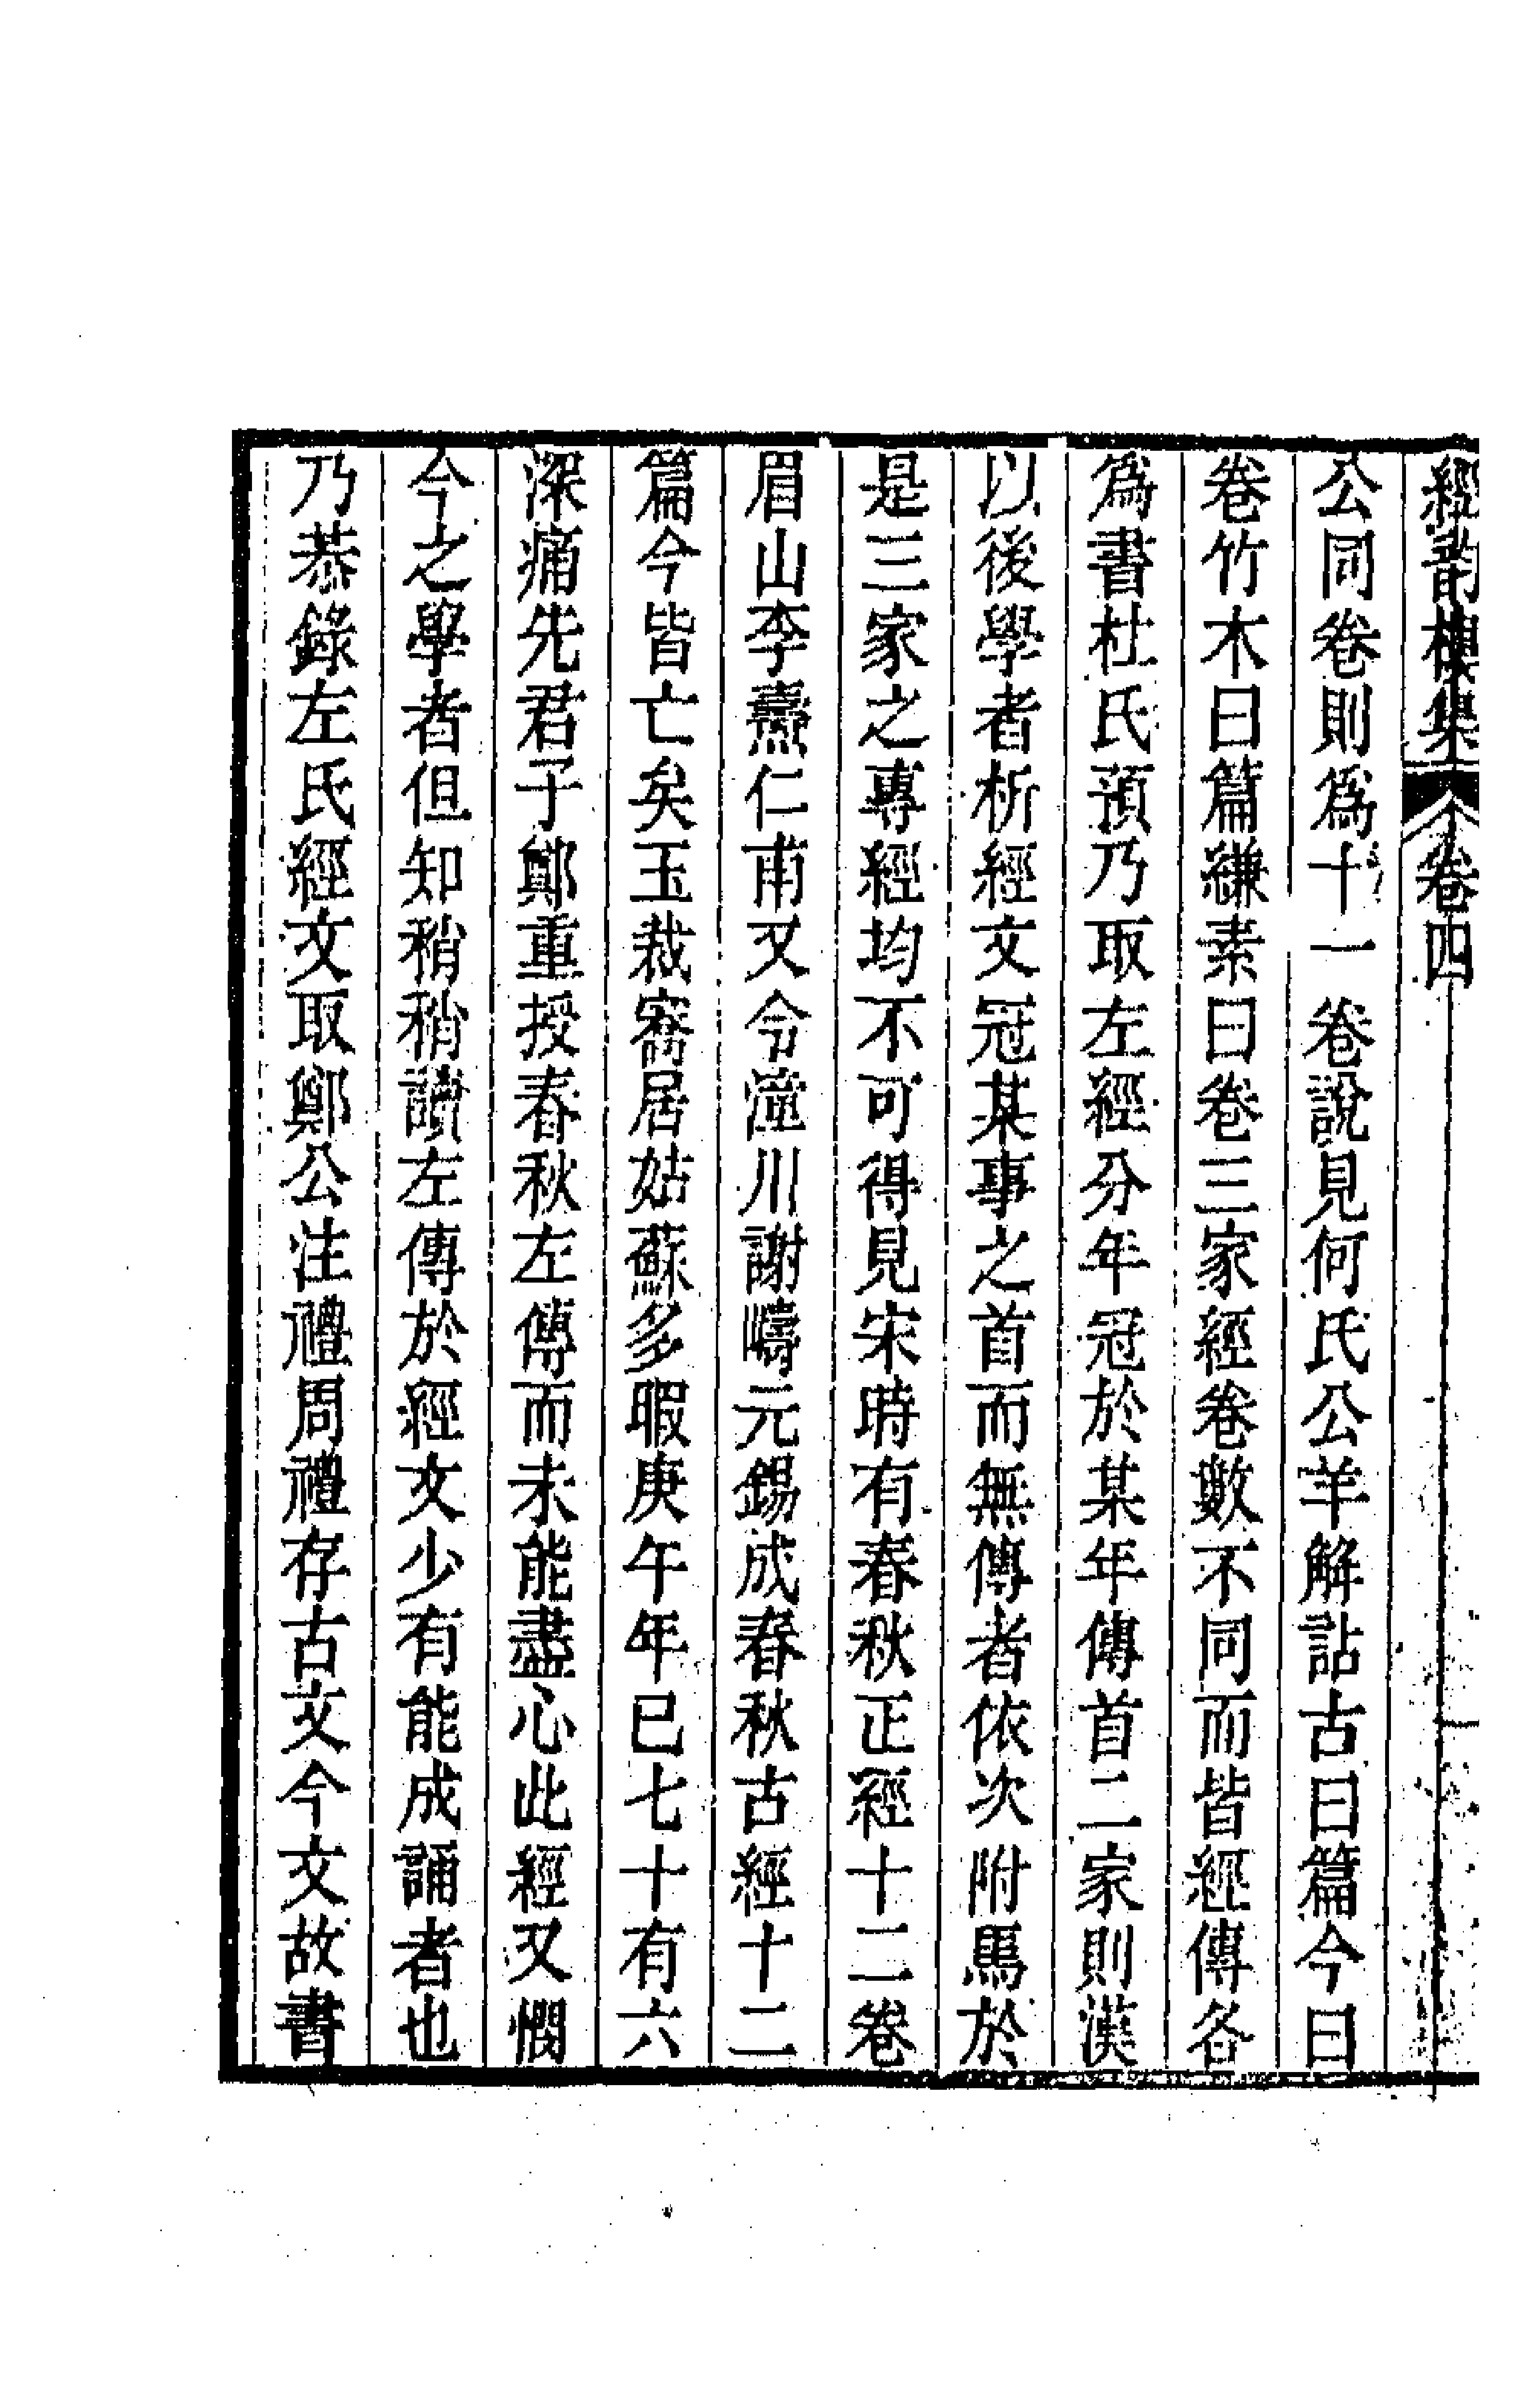 經韵樓集 卷四 一
公同卷則爲十一卷說見何氏公羊解詁古曰篇今曰
卷竹木曰篇縑素曰卷三家經卷數不同而皆經傳各
爲書杜氏預乃取左經分年冠於某年傳首二家則漢
以後學者析經文冠某事之首而無傳者依次附焉於
是三家之專經均不可得見宋時有春秋正經十二卷
眉山李燾仁甫又令潼川謝疇元錫成春秋古經十二
篇今皆亡矣玉裁寄居姑蘇多暇庚午年已七十有六
深痛先君子鄭重授春秋左傳而未能盡心此經又憫
今之學者但知稍稍讀左傳於經文少有能成誦者也
乃恭錄左氏經文取鄭公注禮周禮存古文今文故書